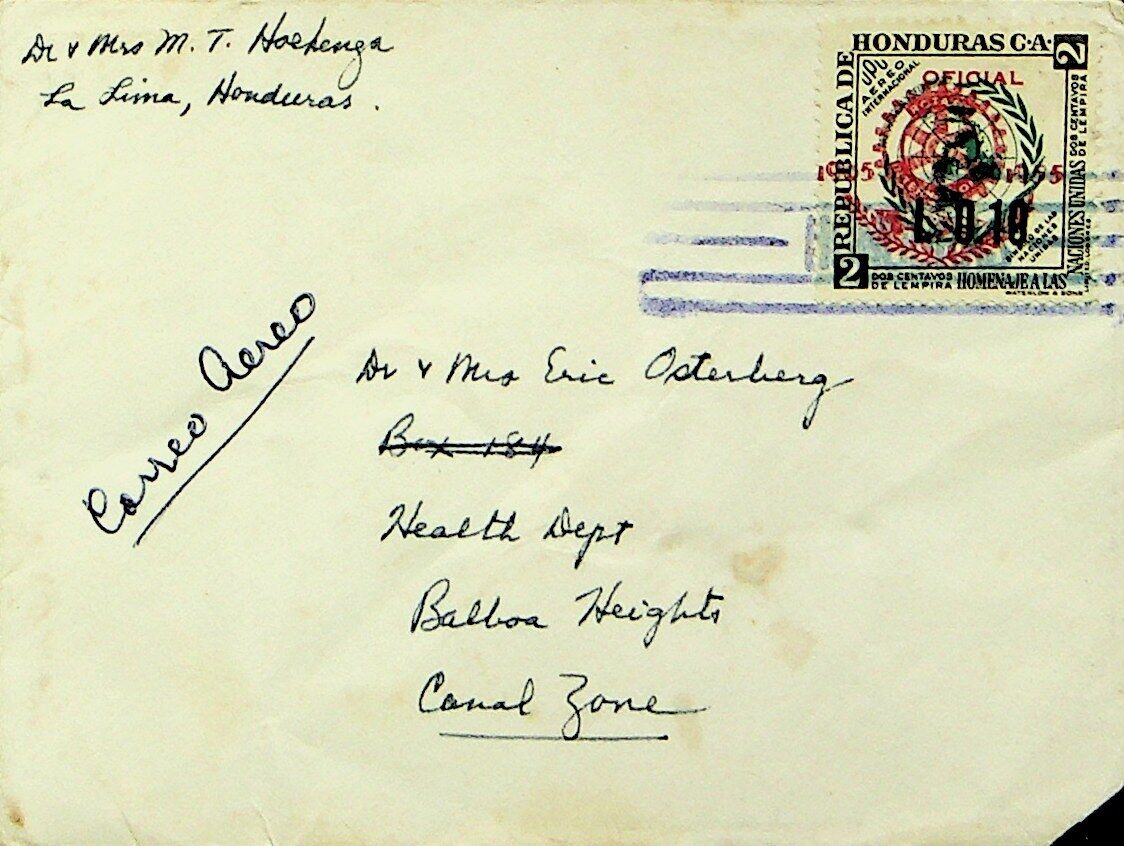 Dr & Mrs M. T. Hoekenga
La Lima, Honduras.
HONDURAS C·A·
2
REPUBLICA DE
UPU
AEREO
INTERNACIONAL
OFICIAL
1905 1955
L 0.10
DOS CENTAVOS
DE LEMPIRA
NACIONES UNIDAS
2
DOS CENTAVOS
DE LEMPIRA
HOMENAJE A LAS
WATERLOW & SONS
Correo Aereo
Dr & Mrs Eric Osterberg
Box 184
Health Dept
Balboa Heights
Canal Zone